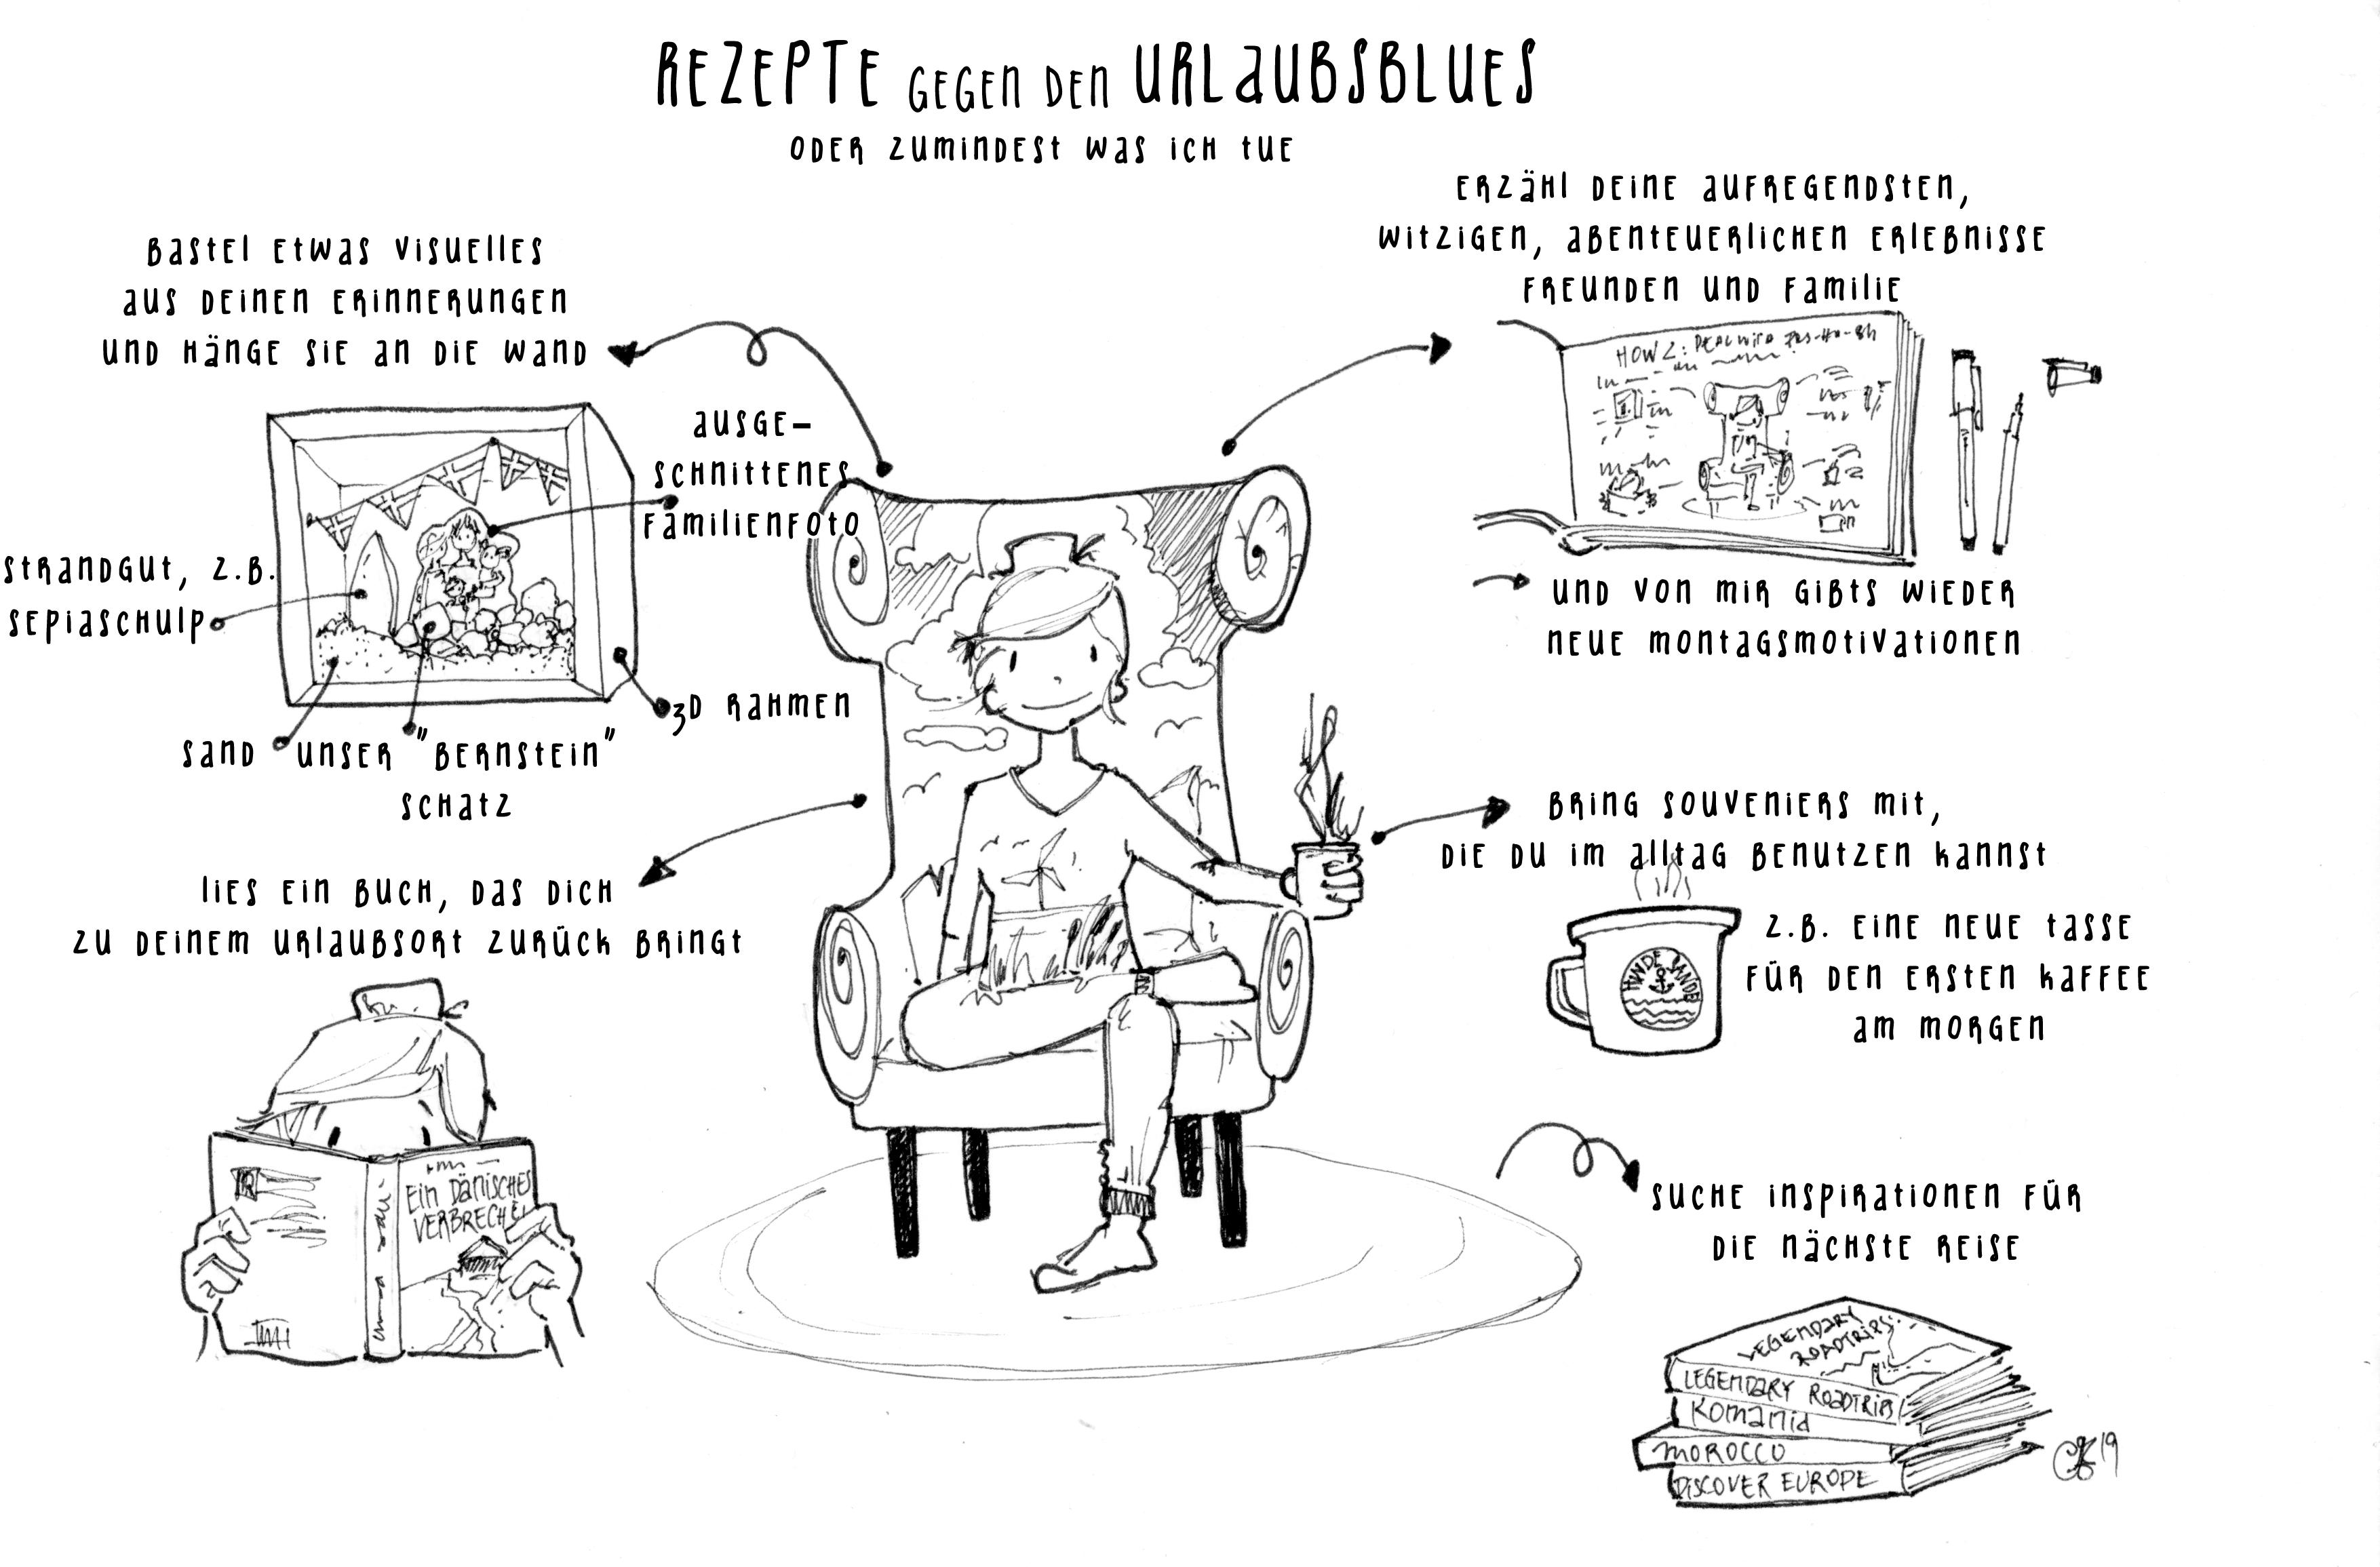 REZEPTE GEGEN DEN URLAUBSBLUES
ODER ZUMINDEST WAS ICH TUE
BASTEL ETWAS VISUELLES
AUS DEINEN ERINNERUNGEN
UND HÄNGE SIE AN DIE WAND
AUSGE-
SCHNITTENES
FAMILIENFOTO
STRANDGUT, Z.B.
SEPIASCHULP
3D RAHMEN
SAND
UNSER "BERNSTEIN"
SCHATZ
LIES EIN BUCH, DAS DICH
ZU DEINEM URLAUBSORT ZURÜCK BRINGT
EIN DÄNISCHES
VERBRECHEN
ERZÄHL DEINE AUFREGENDSTEN,
WITZIGEN, ABENTEUERLICHEN ERLEBNISSE
FREUNDEN UND FAMILIE
HOW 2:
UND VON MIR GIBTS WIEDER
NEUE MONTAGSMOTIVATIONEN
BRING SOUVENIERS MIT,
DIE DU IM ALLTAG BENUTZEN KANNST
Z.B. EINE NEUE TASSE
FÜR DEN ERSTEN KAFFEE
AM MORGEN
HVIDE SANDE
SUCHE INSPIRATIONEN FÜR
DIE NÄCHSTE REISE
LEGENDARY
ROADTRIPS
LEGENDARY ROADTRIPS
ROMANIA
MOROCCO
DISCOVER EUROPE
19